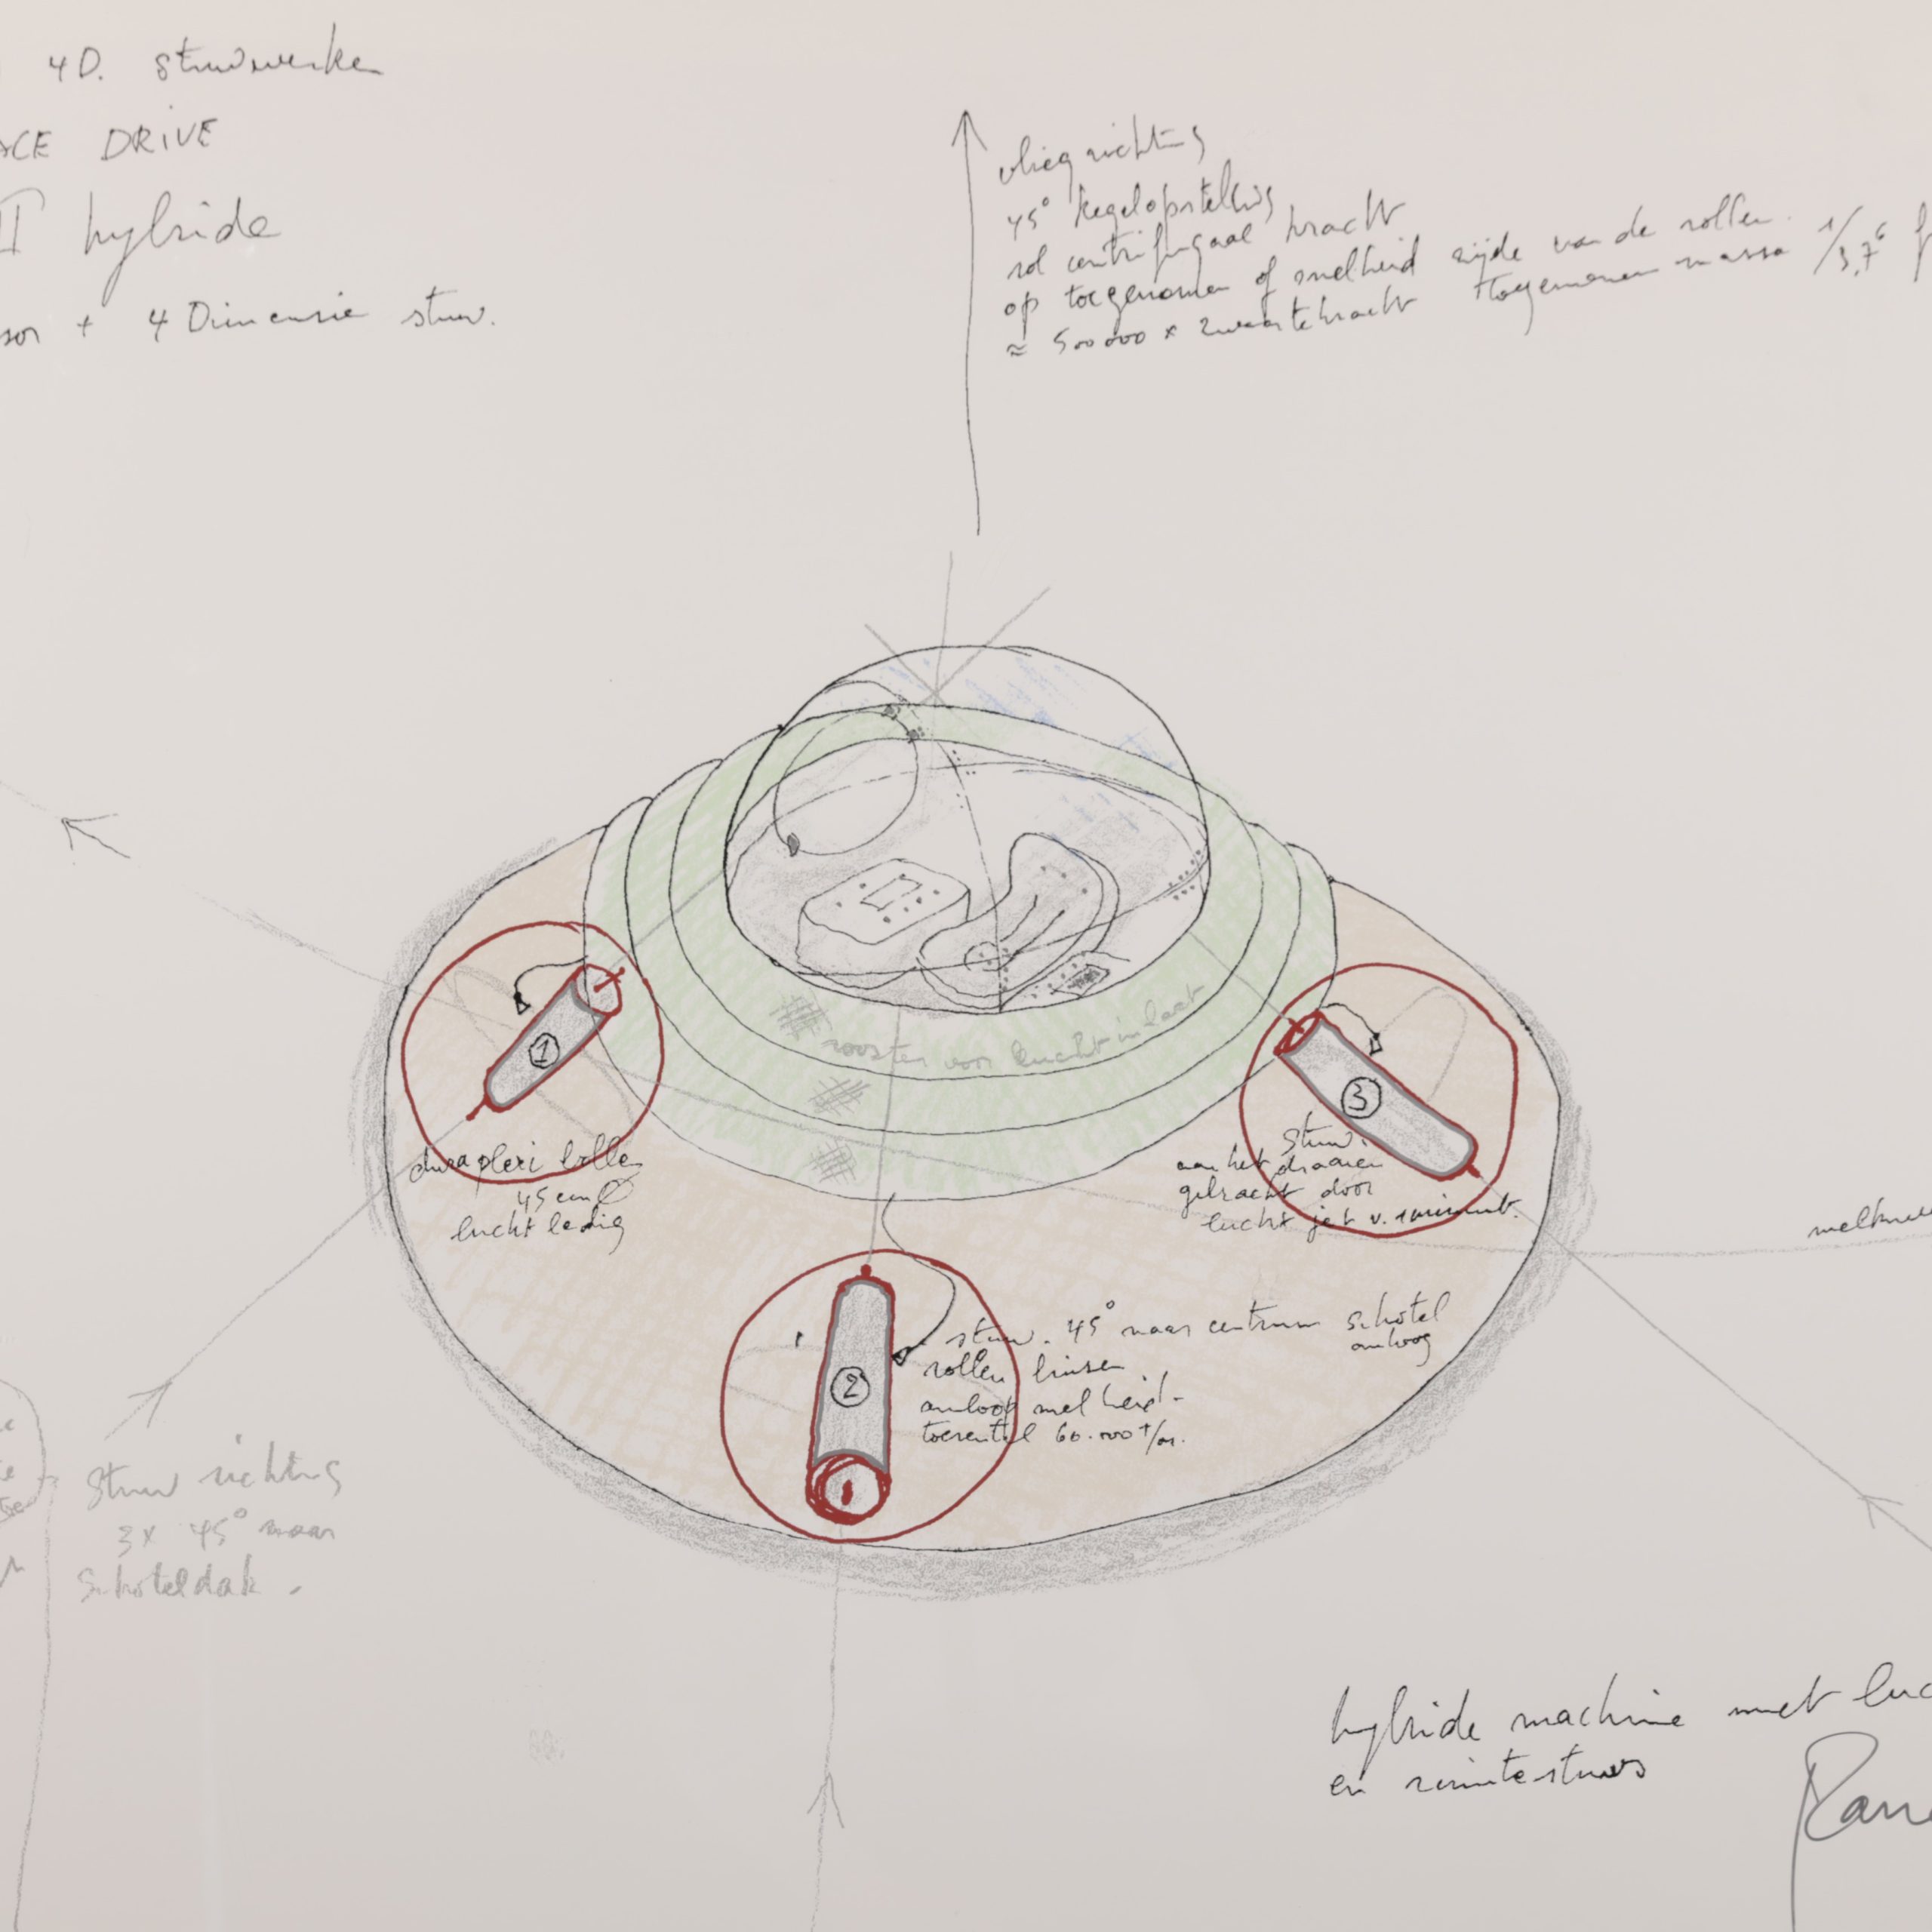 4D. stuwwerken
ACE DRIVE
II hybride
sor + 4 Dimensie stuw.
vliegrichting
45° kegelopstelling
rol centrifugaal kracht
op toegenomen of snelheid zijde van de rollen.
≈ 500000 x zwaartekracht toegenomen massa 1/3,7⁶
rooster voor luchtinlaat
1
3
duraplexi bollen
45 cm Ø
lucht ledig
stuw.
aan het draaien
gebracht door
lucht jet v.
2
stuw. 45° naar centrum schotel
omhoog
rollen binsen
omloop snelheid-
toerental 60.000 t/m.
Stuw richting
3x 45° naar
Schoteldak.
hybride machine met luc
en ruimte stuws